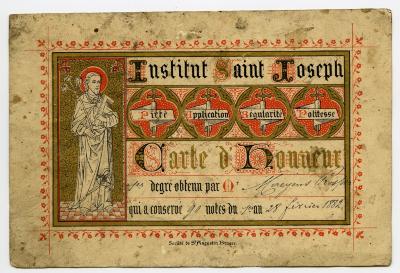 Institut Saint Joseph
Piété Application Régularité Politesse
Carte d'Honneur
degré obtenu par M
qui a conservé 90 notes du 1er au 28 février 1882
Société de St Augustin, Bruges.